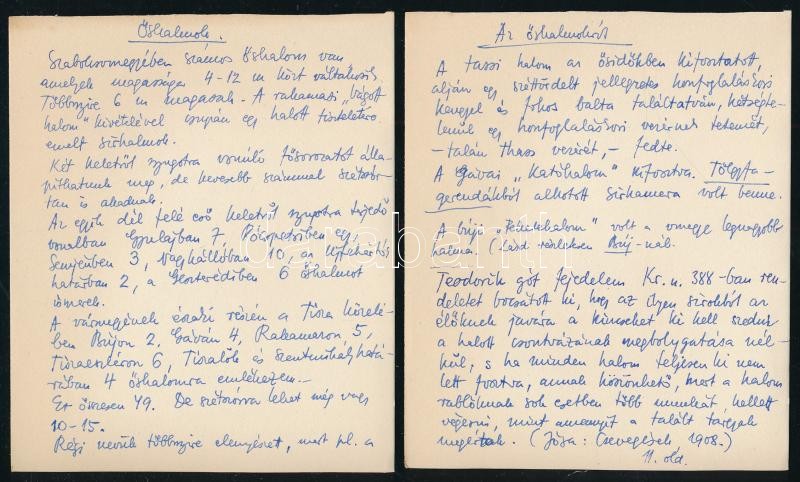 Őshalmok.
Szabolcsvmegyében számos őshalom van
amelyek magassága 4-12 m közt váltakozik
Többnyire 6 m magasak. A rakamazi „Vágott
halom" kivételével csupán egy halott tiszteletére
emelt sírhalmok.
Két keletről nyugatra vonuló fősorozatot álla-
píthatunk meg, de kevesebb számmal szétszór-
tan is akadnak.
Az egyik dél felé eső keletről nyugatra terjedő
vonalban Gyulajban 7, Pócspetriben egy
Semjénben 3, Nagykállóban 10, az Ujfehértós
határban 2, a Geszterédiben 6 őshalmot
ismerek.
A vármegyének északi részén a Tisza közelé-
ben Bűjon 2, Gáván 4, Rakamazon 5,
Tiszaeszláron 6, Tiszalök és Szentmihály hatá-
rában 4 őshalomra emlékezem.-
Ez összesen 49. De szétszórva lehet még vagy
10-15.
Régi nevük többnyire elenyészett, mert pl. a
Az őshalmokról
A tassi halom az ősidőkben kifosztatott,
alján egy széttördelt jellegzetes honfoglaláskori
kengyel és fokos balta találtatván, kétségte-
lenül egy honfoglaláskori vezérnek tetemét,
-talán Thass vezérét, - fedte.
A Gávai „Katóhalom" kifosztva. Tölgyfa-
gerendákból alkotott Sírkamera volt benne.
A búji halom" volt a vmegye legnagyobb
halma (Lásd részletesen Búj-nál.
Teodorik gót fejedelem Kr. u. 388-ban ren-
deletet bocsátott ki, hogy az ilyen sirokból az
élőknek javára a kincseket ki kell szedni
a halott csontvázának megbolygatása nél-
kül, s ha minden halom teljesen ki nem
lett fosztva, annak köszönhető, mert a halom
rablóknak sok esetben több munkát kellett
végezni, mint amennyit a talált tárgyak
megértek. (Jósa: Csevegések, 1908.)
11. old.
darabanth